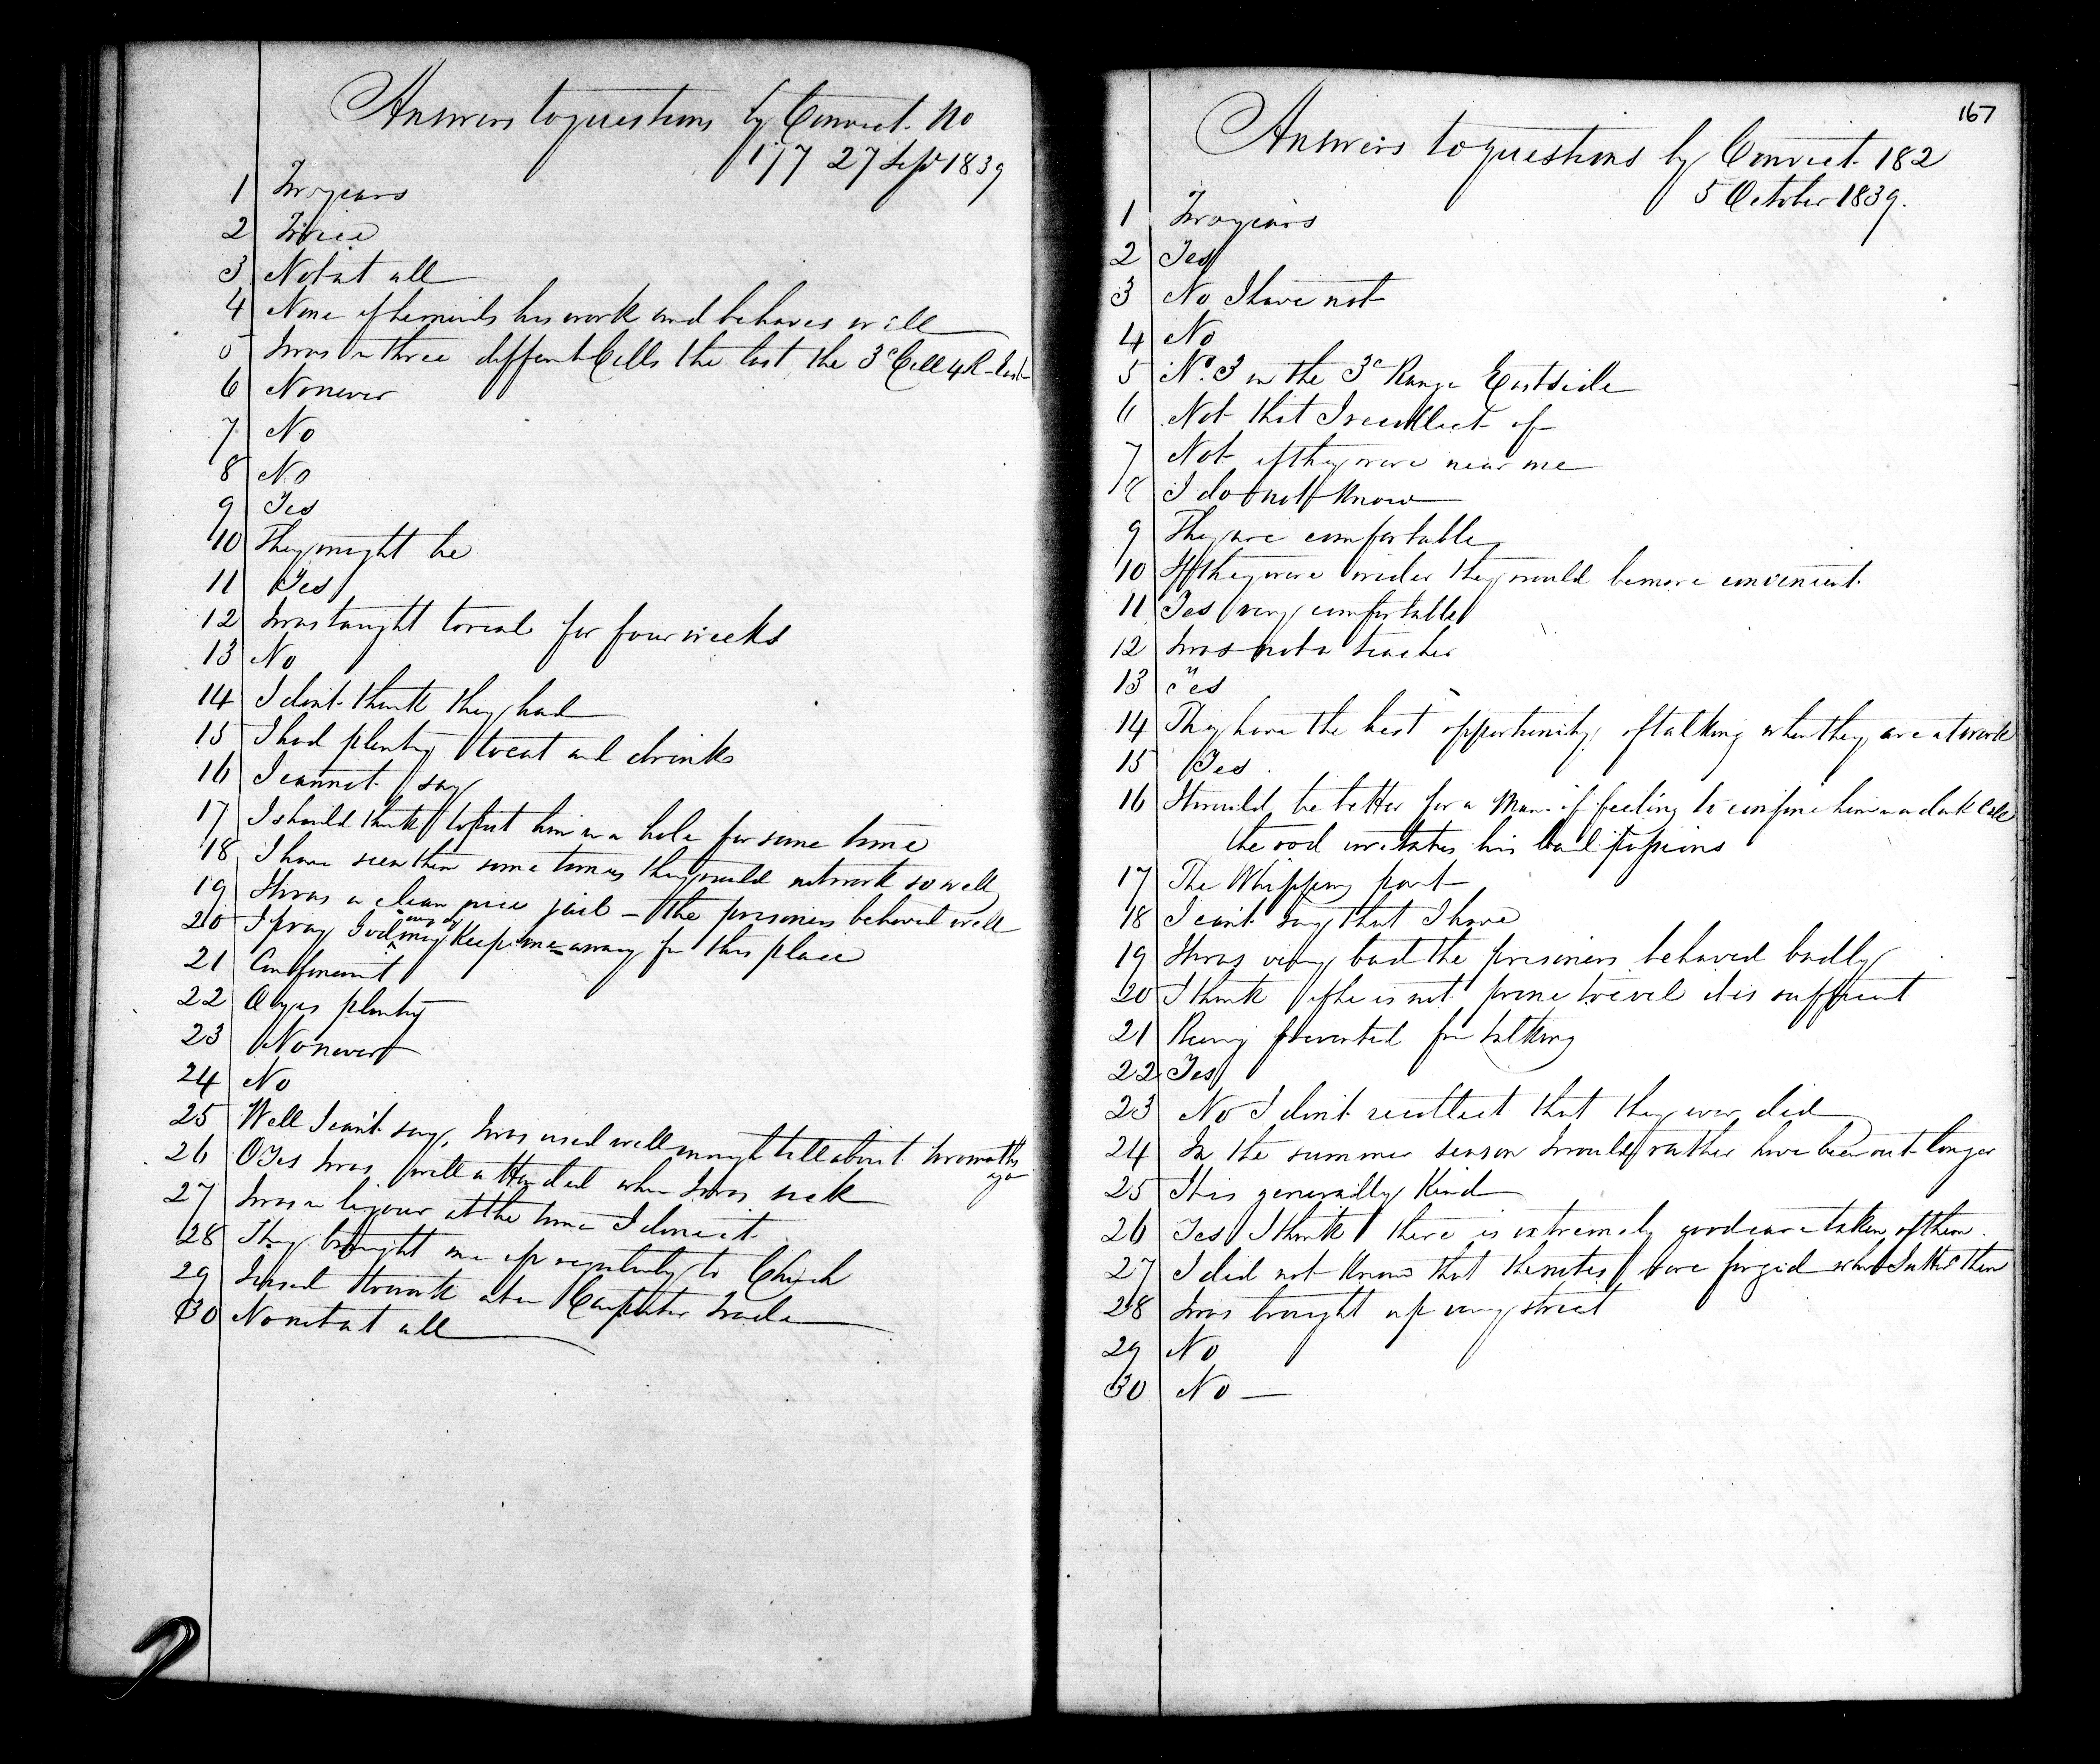 Answers to questions by Convict No
177 27 Sept 1839
1 Two years
2 Twice
3 Not at all
4 None if he minds his work and behaves well
5 I was in three different Cells the last the 3d Cell 4 R - East
6 No never
7 No
8 No
9 Yes
10 They might be
11 Yes
12 I was taught to read for four weeks
13 No
14 I dont think they had
15 I had plenty to eat and drink
16 I cannot say
17 I should think to put him in a hole for some time
18 I have seen them some times they would not work so well
19 It was a clean nice jail - the prisoners behaved well
20 I pray God may keep me away from this place
21 Confinement
22 O yes plenty
23 No never
24 No
25 Well I cant say, I was used well enough till about two months
ago
26 O Yes I was well attended when I was sick
27 I was in liquor at the time I done it
28 They brought me up regularly to Church
29 I used to work at a Carpenter trade
30 No not at all
167
Answers to questions by Convict 182
5 October 1839.
1 Two years
2 Yes
3 No I have not
4 No
5 No. 3 in the 3d Range East side
6 Not that I recollect of
7 Not if they were near me
8 I do not know
9 They are comfortable
10 If they were wider they would be more convenient
11 Yes very comfortable
12 I was not a teacher
13 Yes
14 They have the best opportunity of talking when they are at work
15 Yes
16 It would be better for a Man of feeling to confine him in a dark Cell
the rod irritates his bad passions
17 The Whipping part
18 I cant say that I have
19 It was very bad the prisoners behaved badly
20 I think if he is not prone to evil it is sufficient
21 Being prevented from talking
22 Yes
23 No I dont recollect that they ever did
24 In the summer season I would rather have been out longer
25 It is generally Kind
26 Yes I think there is extremely good care taken of them
27 I did not know that the notes were forged when I uttered them
28 I was brought up very strict
29 No
30 No